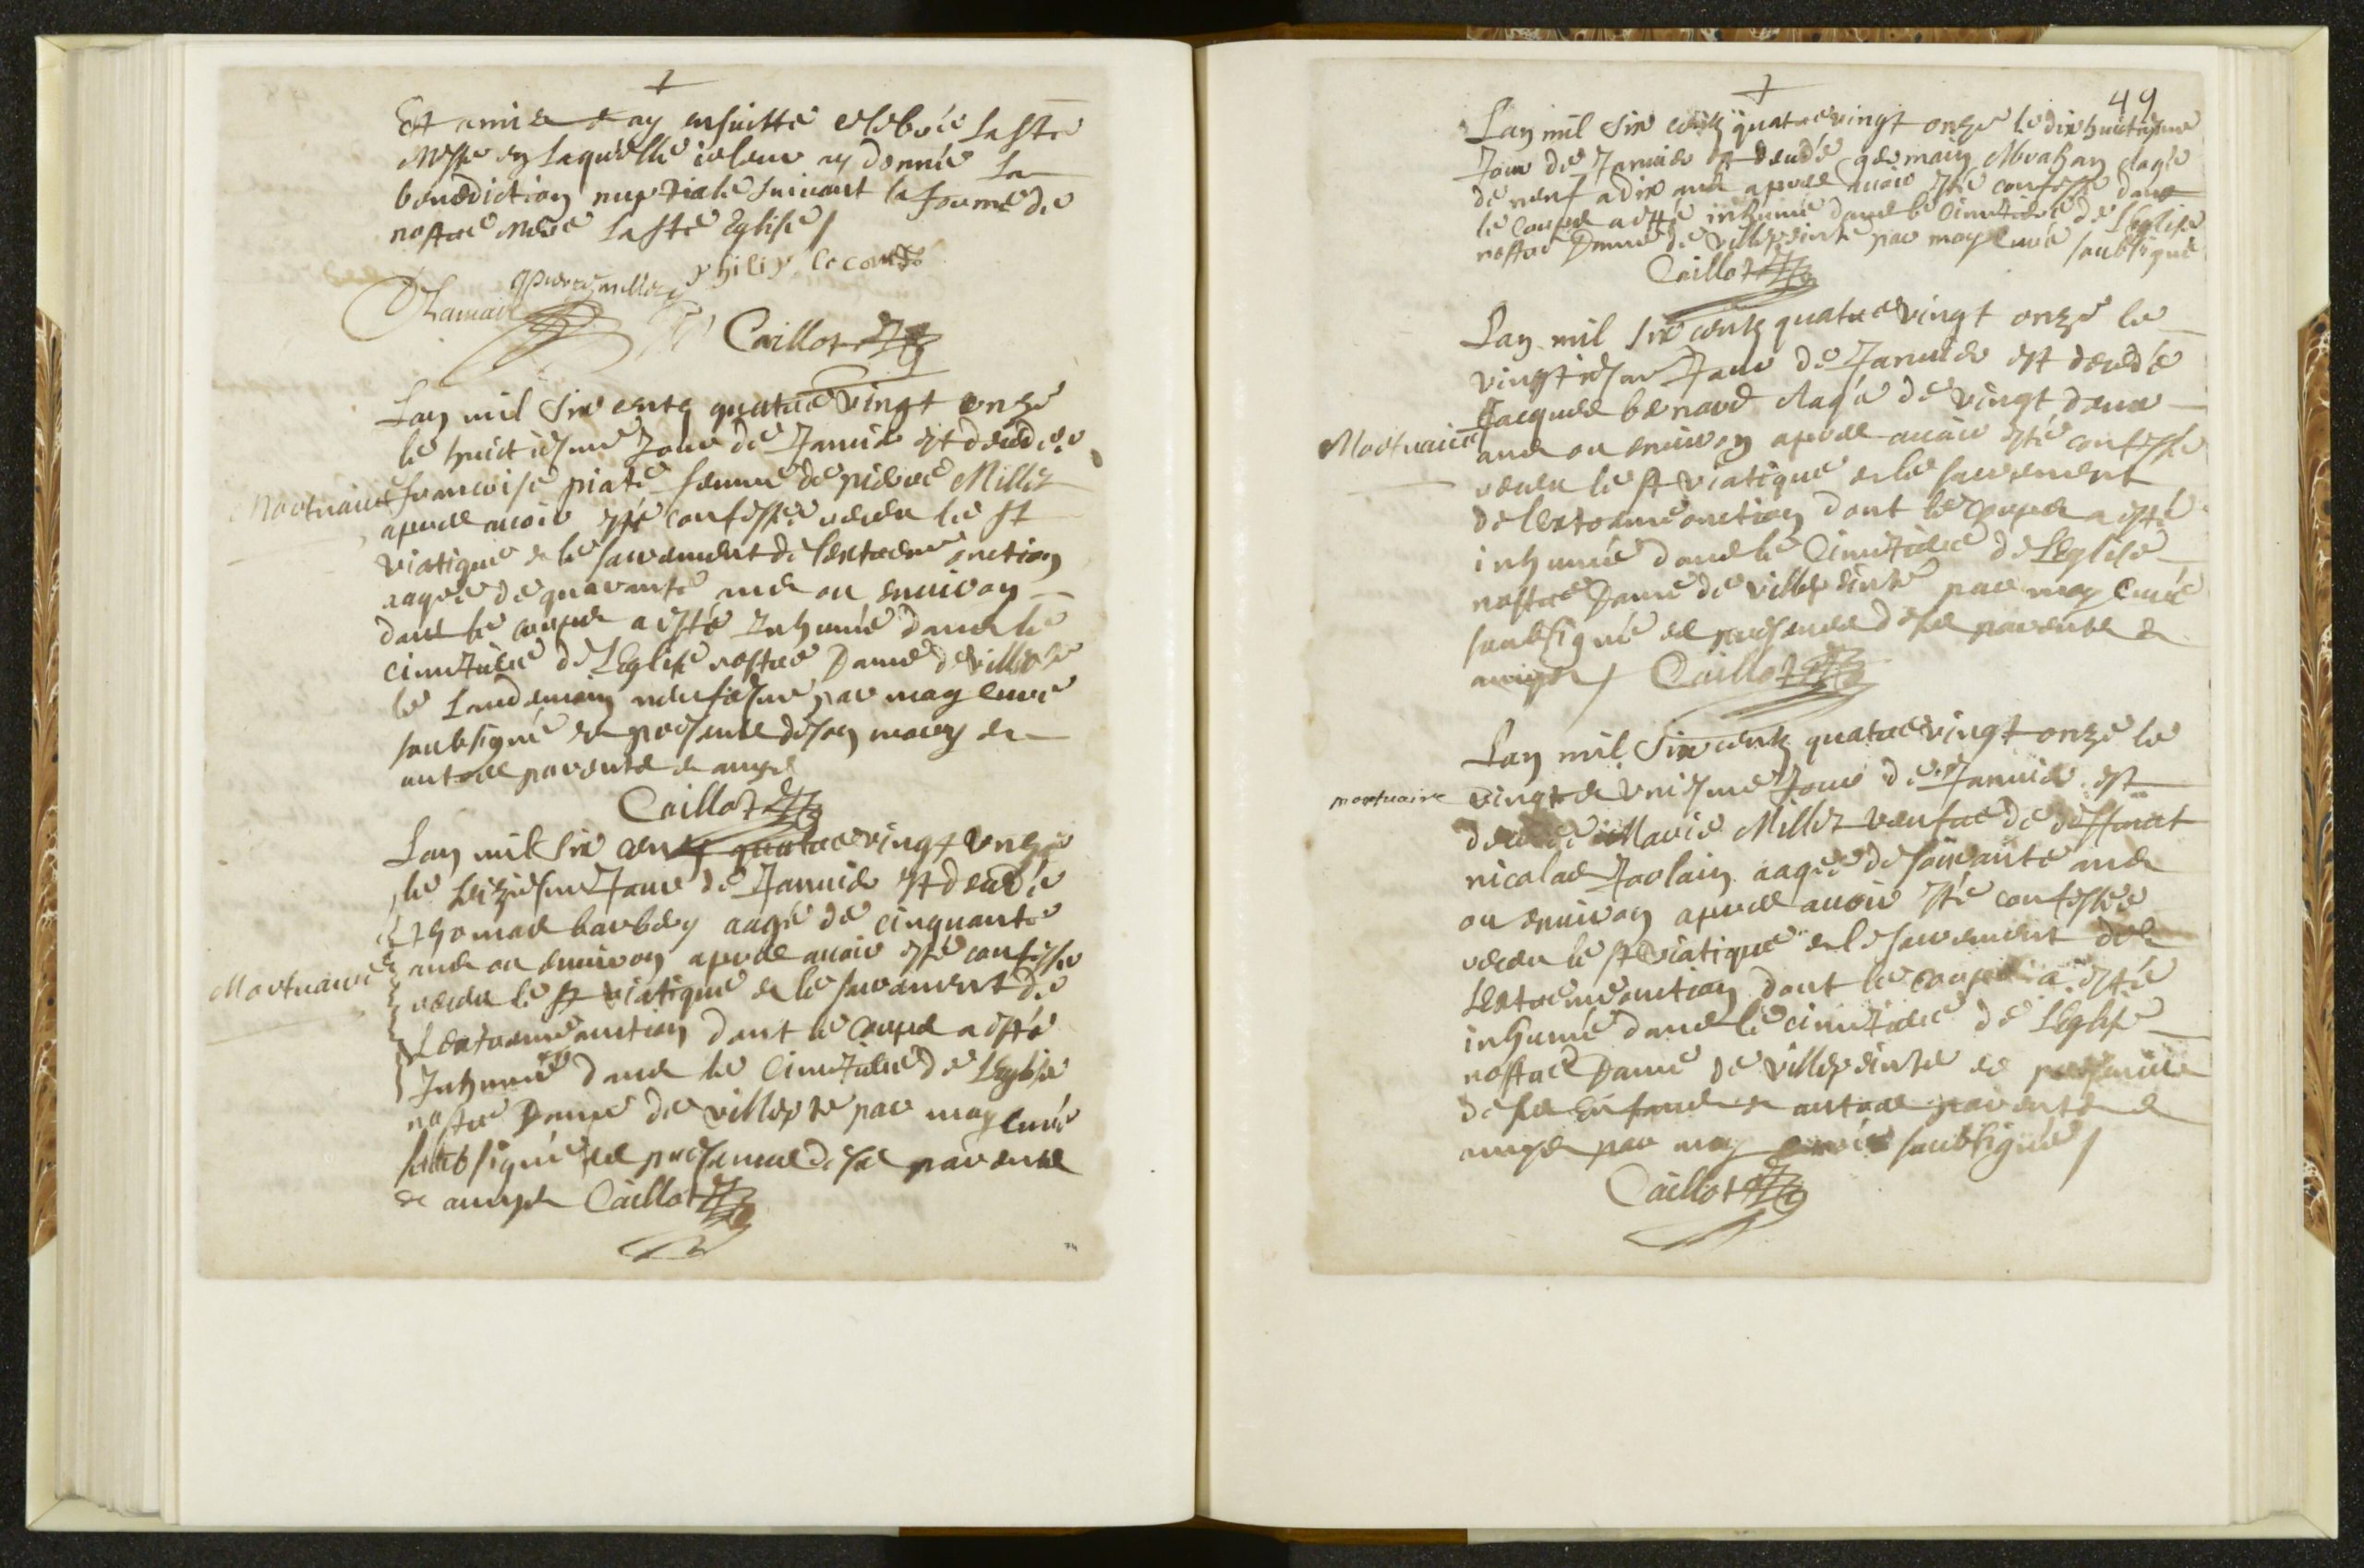 Et amis & ay ensuitte celebrée la Ste
Messe en laquelle je leur ay donnée la
benediction nuptiale suivant la forme de
nostre mere la Ste Eglise /
philip le conte
Lamair
Caillot
Lan mil six cents quatre vingt onze
le huictiesme Jour de Januier est decedée
Mortuaire
francoise piate femme de pierre Millet
apres auoir esté confessée receu le St
viatique & le sacrement de lextreme onction
aagée de quarante ans ou enuiron
dont le corps a esté Inhumé dans le
cimetiere de LEglise nostre Dame de villepte
le Landemain neufiesme par moy curé
soubsigné en presence de son mary et
autres parents & amys
Caillot
Lan mil six cents quatre vingt unze
le seiziesme Jour de Januier est decedé
thomas barbery aagé de cinquante
Mortuaire
ans ou enuiron apres auoir esté confessé
receu le St viatique & le sacrement de
Lextreme onction dont le corps a esté
Inhumé dans le Cimetiere de Leglise
nostre Dame de villepte par moy curé
soubsigné en presence de ses parents
& amys Caillot
49
Lan mil six cents quatre vingt onze le dix huictiesme
Jour de Januier est decedé germain Abraham aagé
de neuf a dix ans apres auoir esté confessé dont
le corps a esté inhumé dans le Cimetiere de LEglise
nostre Dame de villepeinte par moy curé soubsigné
Caillot
Lan mil six cents quatre vingt onze le
vingtiesme Jour de Januier est decedé
Jacques benard aagé de vingt deux
Mortuaire
ans ou enuiron apres auoir esté confessé
receu le St viatique & le sacrement
de lextreme onction dont le corps a esté
inhumé dans le Cimetiere de LEglise
nostre Dame de villepeinte par moy Curé
soubsigné en presence de ses parents &
amys / Caillot
Lan mil six cents quatre vingt onze le
mortuaire
vingt & uniesme Jour de Januier est
decedée Marie Millet veufue de deffunct
nicolas Jolain aagée de soixante ans
ou enuiron apres auoir esté confessée
receu le St viatique & le sacrement de
Lextreme onction dont le corps a esté
inhumé dans le cimetiere de LEglise
nostre Dame de villepeinte en presence
de ses Enfans & autres parents &
amys par moy curé soubsigné /
Caillot